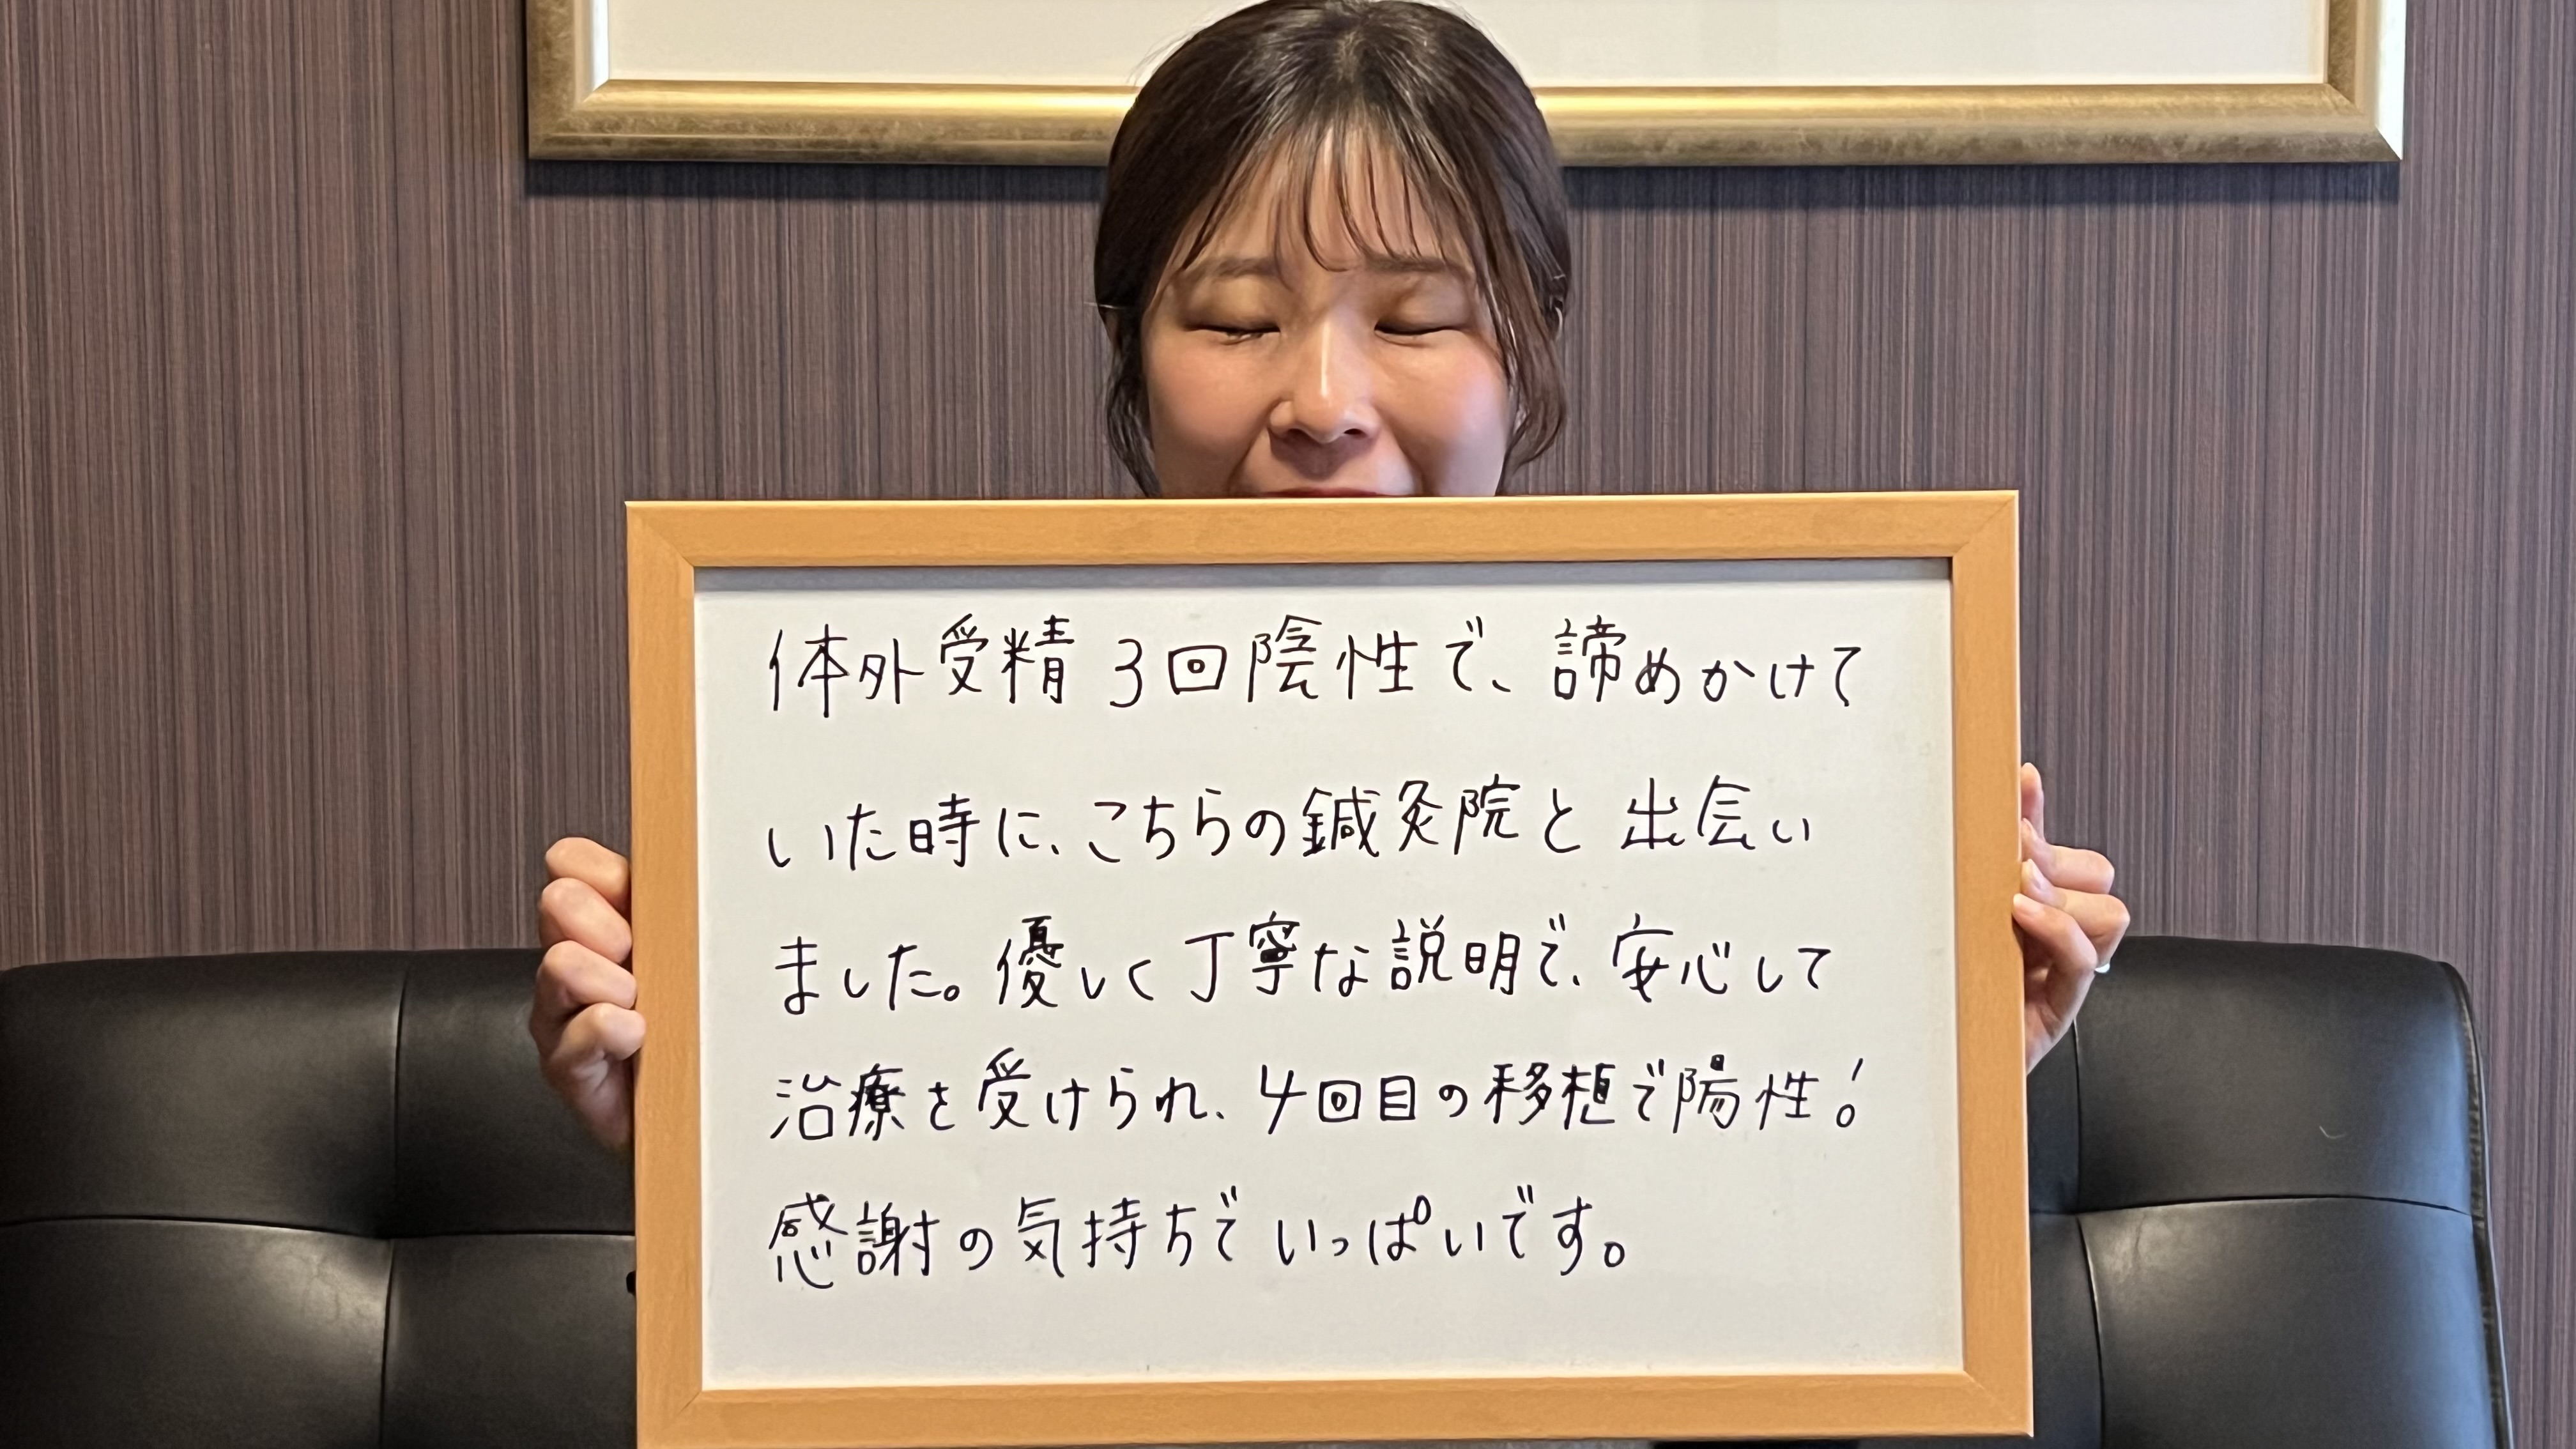 体外受精 3回陰性で、諦めかけて
いた時に、こちらの鍼灸院と出会い
ました。優しく丁寧な説明で、安心して
治療を受けられ、4回目の移植で陽性!
感謝の気持ちでいっぱいです。